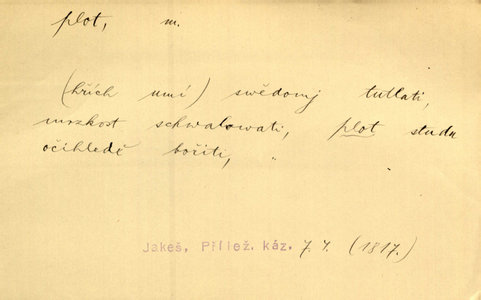 plot, m.
(hřích umí) swědomj tutlati,
mrzkost schwalowati, plot studu
očihledě bořiti, „
Jakeš, Příllež. káz. 7. 4. (1817.)